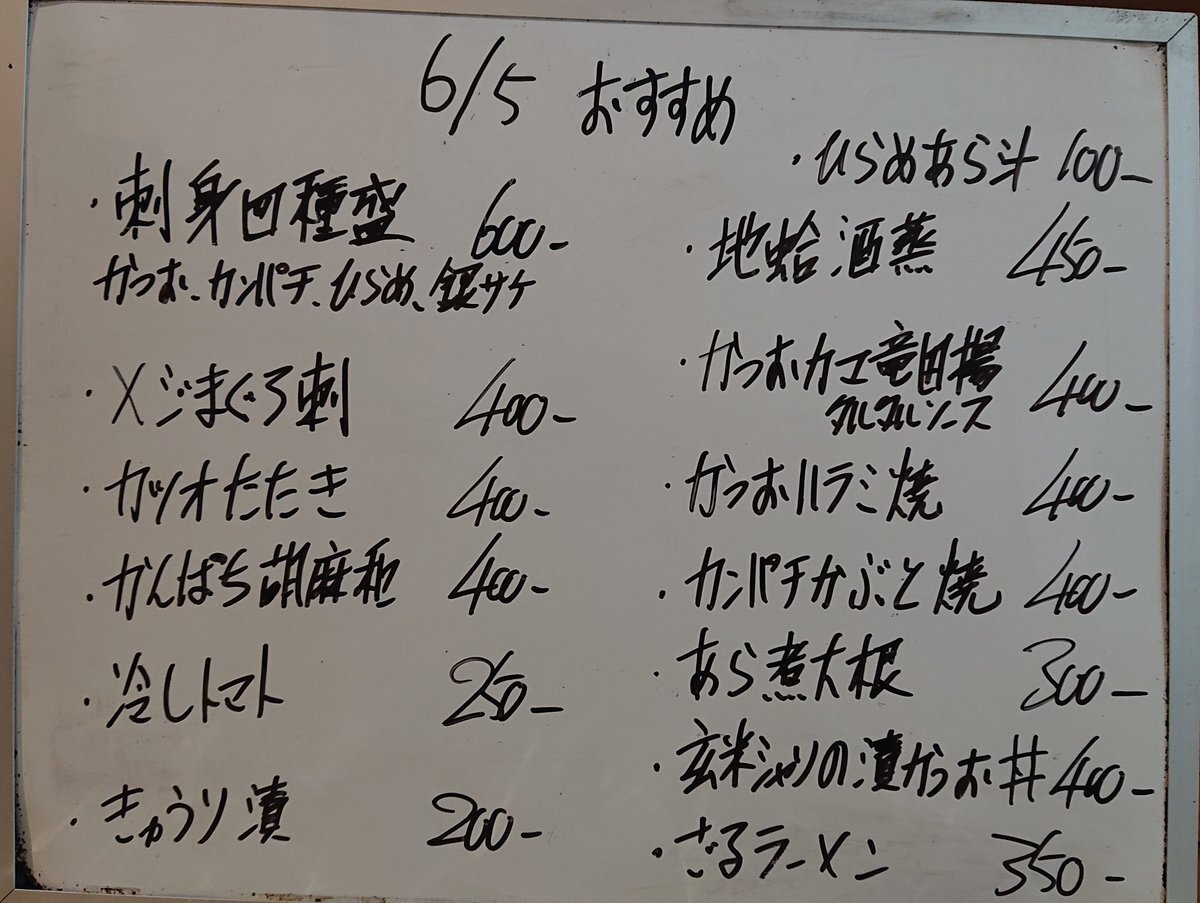 6/5 おすすめ
・刺身四種盛 600-
かつお、カンパチ、ひらめ、銀サケ
・メジまぐろ刺 400-
・カツオたたき 400-
・かんぱち胡麻和 400-
・冷しトマト 250-
・きゅうり漬 200-
・ひらめあら汁 100-
・地蛤酒蒸 450-
・かつおカマ竜田揚 400-
タルタルソース
・かつおハラミ焼 400-
・カンパチかぶと焼 400-
・あら煮大根 300-
・玄米シャリの漬かつお丼 400-
・ざるラーメン 350-